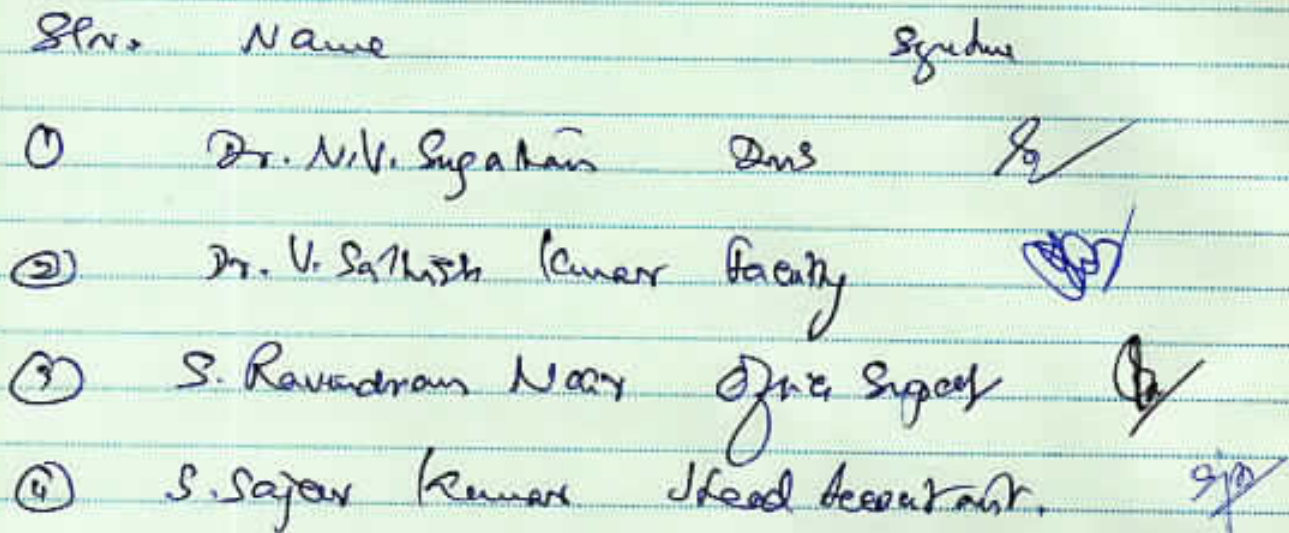 Slno. Name Signature
① Dr. N.V. Sugathan DMS
② Dr. V. Sathish Kumar Faculty
③ S. Raveendran Nair Office Supdt
④ S. Sajeev Kumar Head Accountant.